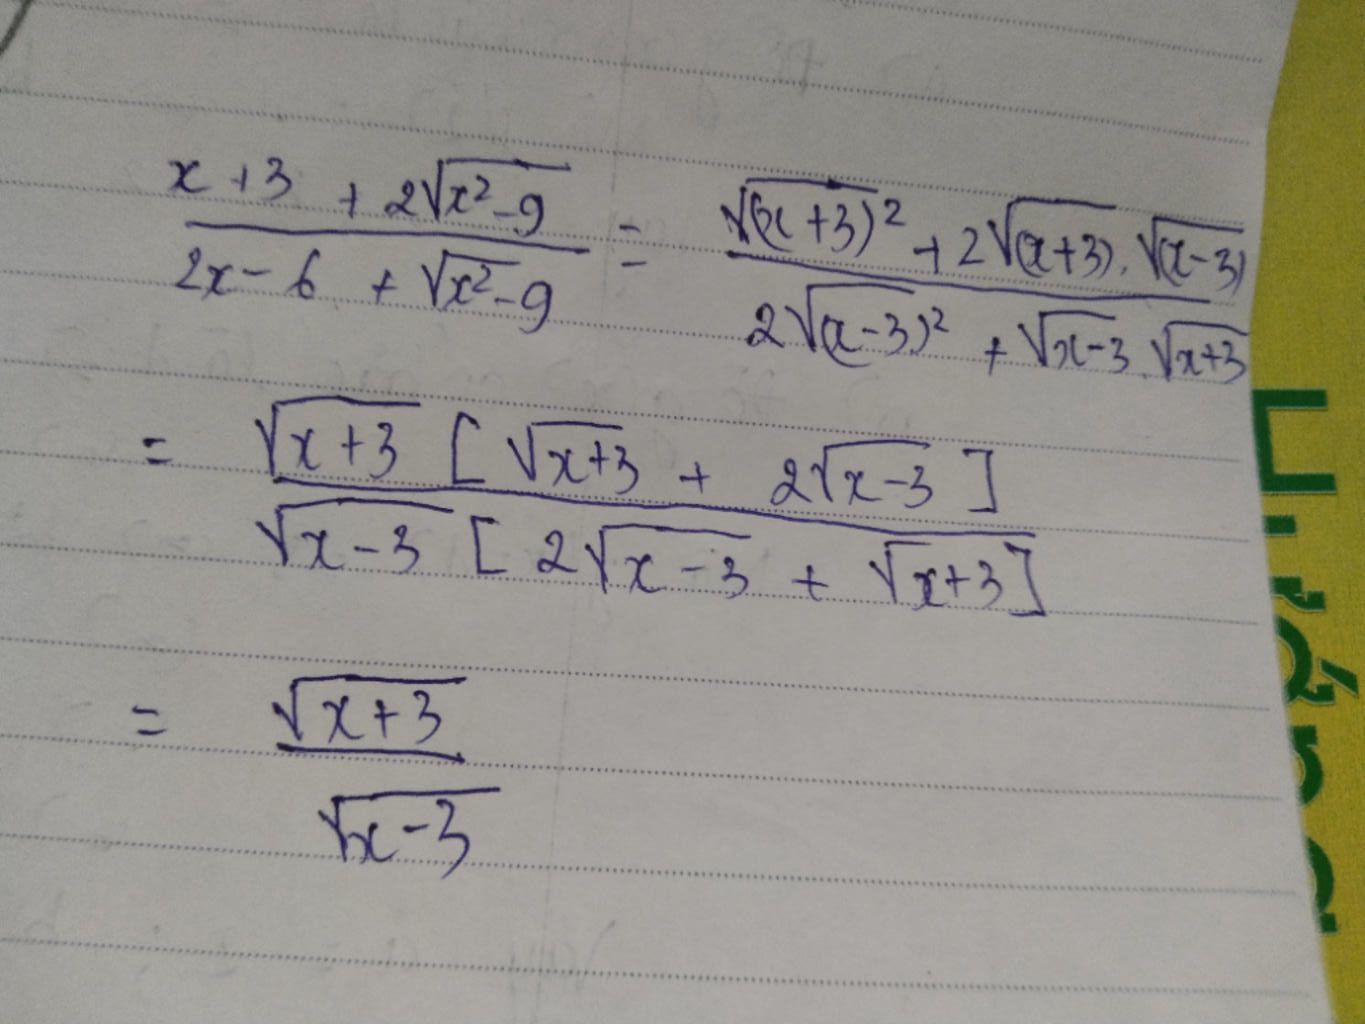 x+3 + 2√(x²-9) / 2x-6 + √(x²-9) = √(x+3)² + 2√(x+3).√(x-3) / 2√(x-3)² + √x-3.√x+3
= √x+3 [√x+3 + 2√x-3] / √x-3 [2√x-3 + √x+3]
= √x+3 / √x-3